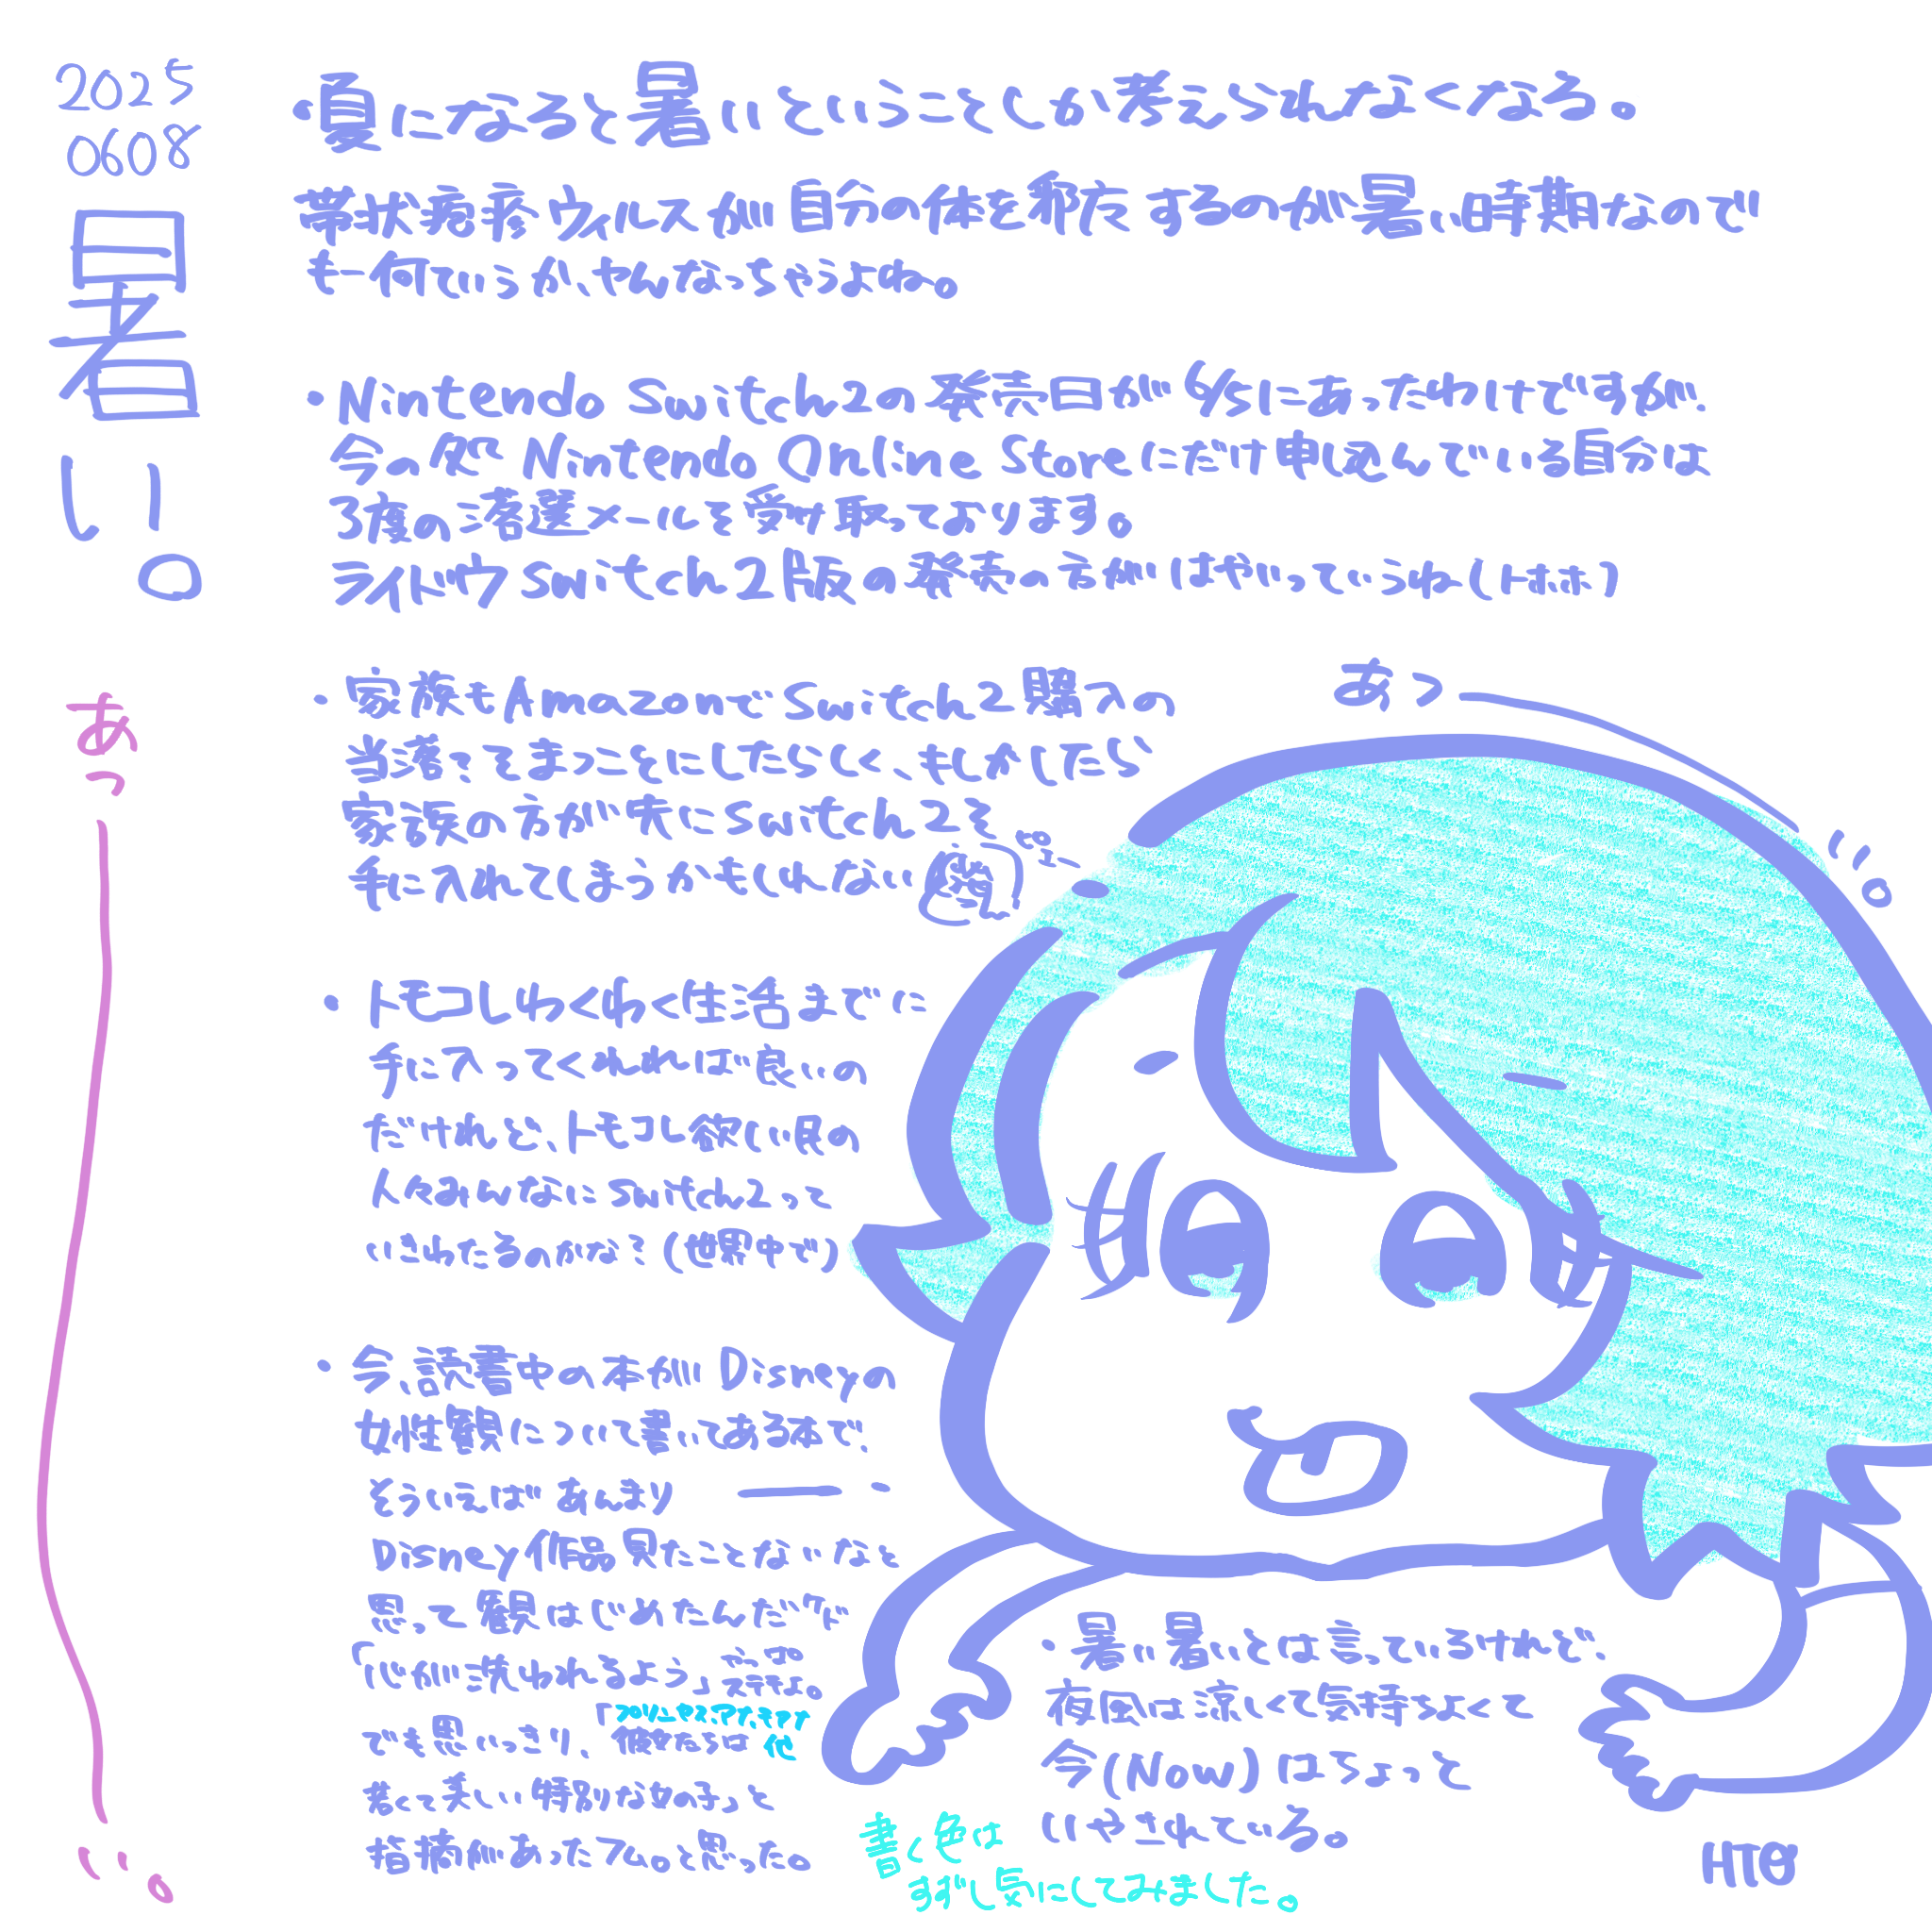 2025
0608
暑い。
あっ
い。
・夏になると暑いということしか考えられなくなる。
帯状疱疹ウィルスが自分の体を邪魔するのが暑い時期なので
もー何ていうか、やんなっちゃうよね。
・Nintendo Switch2の発売日が6/5にあったわけですが、
今の処 Nintendo Online Storeにだけ申し込んでいる自分は
3度の落選メールを受け取っております。
ライドウ Switch2版の発売の方がはやいっていうね(トホホ)
・家族もAmazonでSwitch2購入の
当落?をまつことにしたらしく、もしかしたら
家族の方が先にSwitch2を
手に入れてしまうかもしれない
・トモコレわくわく生活までに
手に入ってくれれば良いの
だけれど、トモコレ欲しい民の
人々みんなにSwitch2って
いきわたるのかな?(世界中で)
・今、読書中の本がDisneyの
女性観について書いてある本で、
そういえばあんまり
Disney作品見たことないなと
思って観はじめたんだケド
「心が洗われるよう」
ですよ。
でも思いっきり、
「プリンセスでアナタもアナタ
彼女たちは他
若くて美しい特別な女の子」と
指摘があったフム。と思った。
あつ
い。
・暑い暑いとは言っているけれど、
夜風は涼しくて気持ちよくて
今(Now)はちょっと
いやされている。
書く色は
すずし気にしてみました。
HTO